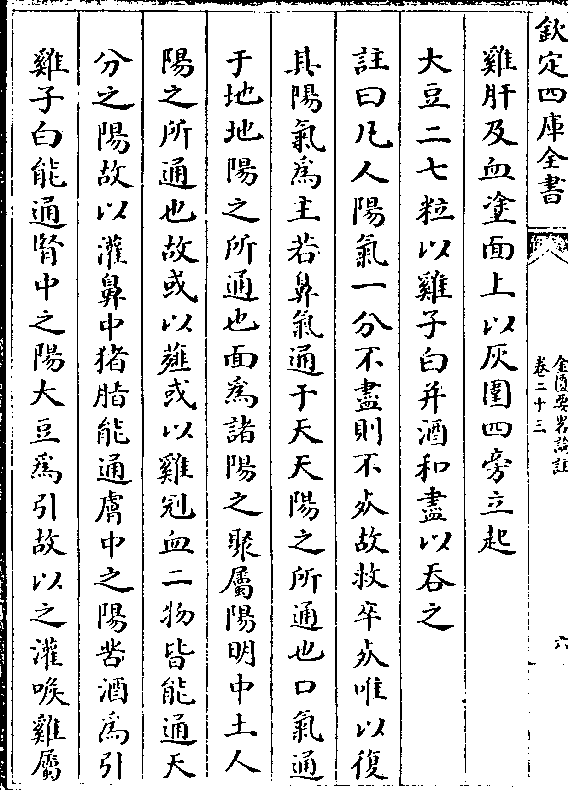 欽定四庫全書
金匱要畧論註
卷二十三
六
雞肝及血塗面上以灰圍四旁立起
大豆二七粒以雞子白并酒和盡以吞之
註曰凡人陽氣一分不盡則不死故救卒死唯以復
其陽氣為主若鼻氣通于天天陽之所通也口氣通
于地地陽之所通也面為諸陽之聚屬陽明中土人
陽之所通也故或以薤或以雞冠血二物皆能通天
分之陽故以灌鼻中猪脂能通膚中之陽苦酒為引
雞子白能通腎中之陽大豆為引故以之灌喉雞屬